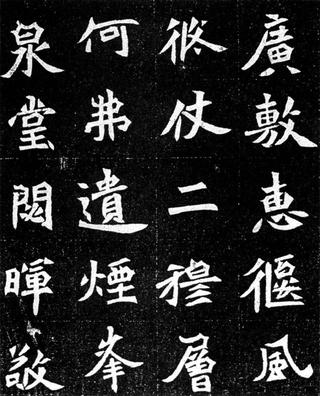 廣敷惠偃風
修仗二穆層
何弗遺煙峯
泉堂閟暉敬